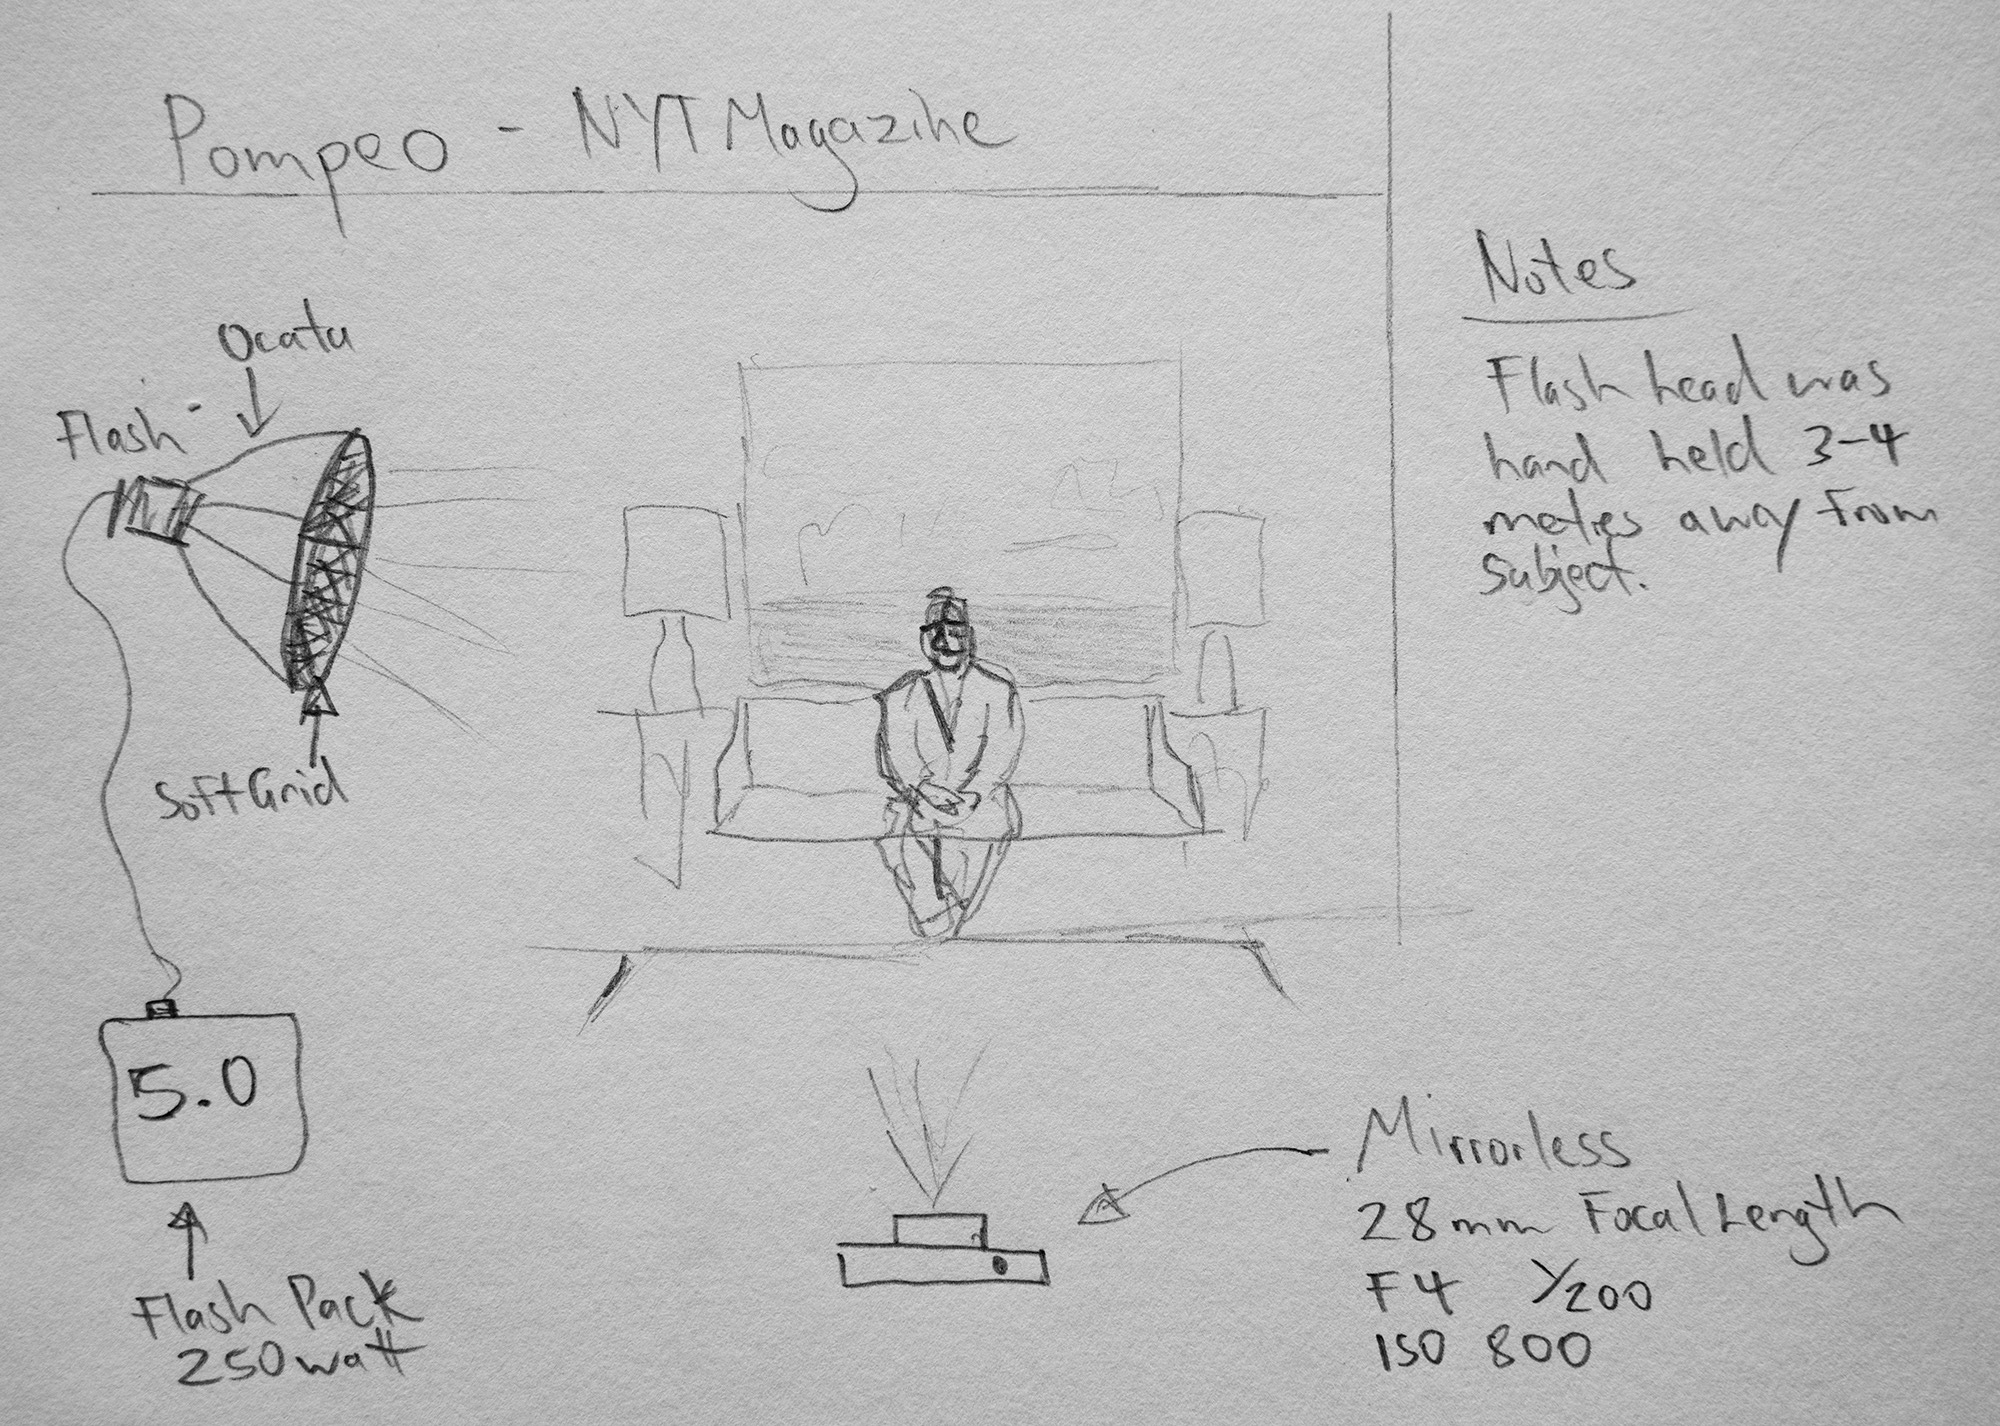 Pompeo - NYT Magazine
Notes
Flash head was
hand held 3-4
metres away from
subject.
Ocata
Flash
Soft Grid
5.0
Flash Pack
250 watt
Mirrorless
28mm Focal Length
F4 1/200
ISO 800